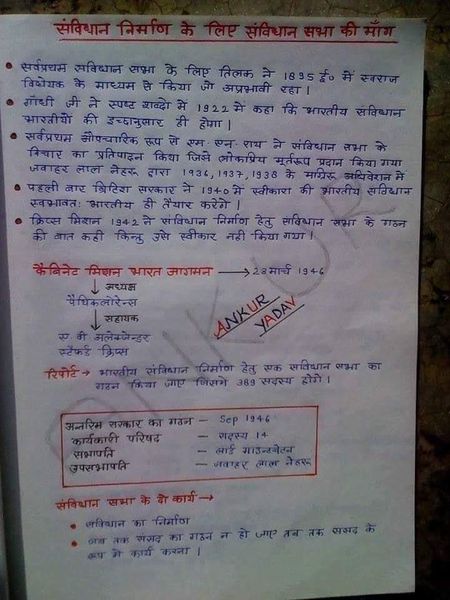 संविधान निर्माण के लिए संविधान सभा की माँग
• सर्वप्रथम संविधान सभा के लिए तिलक ने 1895 ई० में स्वराज
विधेयक के माध्यम से किया जो अप्रभावी रहा।
• गाँधी जी ने स्पष्ट शब्दों में 1922 में कहा कि भारतीय संविधान
भारतीयों की इच्छानुसार ही होगा।
• सर्वप्रथम औपचारिक रूप से एम. एन. राय ने संविधान सभा के
विचार का प्रतिपादन किया जिसे लोकप्रिय मूर्तरूप प्रदान किया गया
जवाहर लाल नेहरू द्वारा 1936, 1937, 1938 के कांग्रेस अधिवेशन में
• पहली बार ब्रिटिश सरकार ने 1940 में स्वीकारा की भारतीय संविधान
स्वभावतः भारतीय ही तैयार करेगें।
• क्रिप्स मिशन 1942 ने संविधान निर्माण हेतु संविधान सभा के गठन
की बात कही किन्तु उसे स्वीकार नही किया गया।
कैबिनेट मिशन भारत आगमन → 23 मार्च 1946
↓ अध्यक्ष
पैथिकलोरेन्स
↓ सहायक
ए. बी. अलेक्जेन्डर
स्टैफर्ड क्रिप्स
ANKUR
YADAV
रिपोर्ट → भारतीय संविधान निर्माण हेतु एक संविधान सभा का
गठन किया जाए जिसमें 389 सदस्य होंगे।
अन्तरिम सरकार का गठन - Sep 1946
कार्यकारी परिषद - सदस्य 14
सभापति - लार्ड माउन्टबेटन
उपसभापति - जवाहर लाल नेहरू
संविधान सभा के दो कार्य →
• संविधान का निर्माण
• जब तक संसद का गठन न हो जाए तब तक संसद के
रूप में कार्य करना।
ANKUR